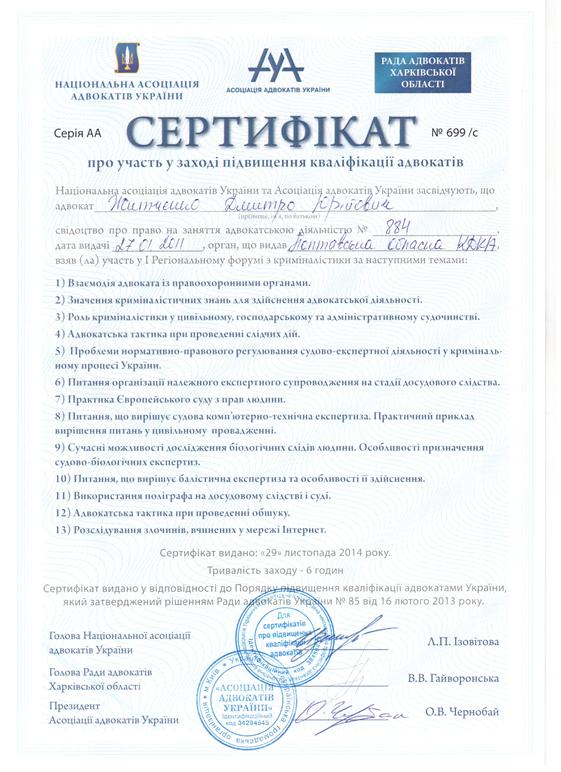 НАЦІОНАЛЬНА АСОЦІАЦІЯ
АДВОКАТІВ УКРАЇНИ
АСОЦІАЦІЯ АДВОКАТІВ УКРАЇНИ
РАДА АДВОКАТІВ
ХАРКІВСЬКОЇ
ОБЛАСТІ
Серія АА
СЕРТИФІКАТ
№ 699 /с
про участь у заході підвищення кваліфікації адвокатів
Національна асоціація адвокатів України та Асоціація адвокатів України засвідчують, що
адвокат Дмитро
(прізвище, ім'я, по батькові)
свідоцтво про право на заняття адвокатською діяльністю № 884
дата видачі 27.01.2011, орган, що видав Полтавська обласна КДКА,
взяв (ла) участь у І Регіональному форумі з криміналістики за наступними темами:
1) Взаємодія адвоката із правоохоронними органами.
2) Значення криміналістичних знань для здійснення адвокатської діяльності.
3) Роль криміналістики у цивільному, господарському та адміністративному судочинстві.
4) Адвокатська тактика при проведенні слідчих дій.
5) Проблеми нормативно-правового регулювання судово-експертної діяльності у криміналь-
ному процесі України.
6) Питання організації належного експертного супроводження на стадії досудового слідства.
7) Практика Європейського суду з прав людини.
8) Питання, що вирішує судова комп'ютерно-технічна експертиза. Практичний приклад
вирішення питань у цивільному провадженні.
9) Сучасні можливості дослідження біологічних слідів людини. Особливості призначення
судово-біологічних експертиз.
10) Питання, що вирішує балістична експертиза та особливості її здійснення.
11) Використання поліграфа на досудовому слідстві і суді.
12) Адвокатська тактика при проведенні обшуку.
13) Розслідування злочинів, вчинених у мережі Інтернет.
Сертифікат видано: «29» листопада 2014 року.
Тривалість заходу - 6 годин
Сертифікат видано у відповідності до Порядку підвищення кваліфікації адвокатами України,
який затверджений рішенням Ради адвокатів України № 85 від 16 лютого 2013 року.
Для
сертифікатів
про підвищення
кваліфікації
адвокатів
Голова Національної асоціації
адвокатів України
Л.П. Ізовітова
Голова Ради адвокатів
Харківської області
В.В. Гайворонська
Президент
Асоціації адвокатів України
О.В. Чернобай
«АСОЦІАЦІЯ
АДВОКАТІВ
УКРАЇНИ»
Ідентифікаційний
код 34294645